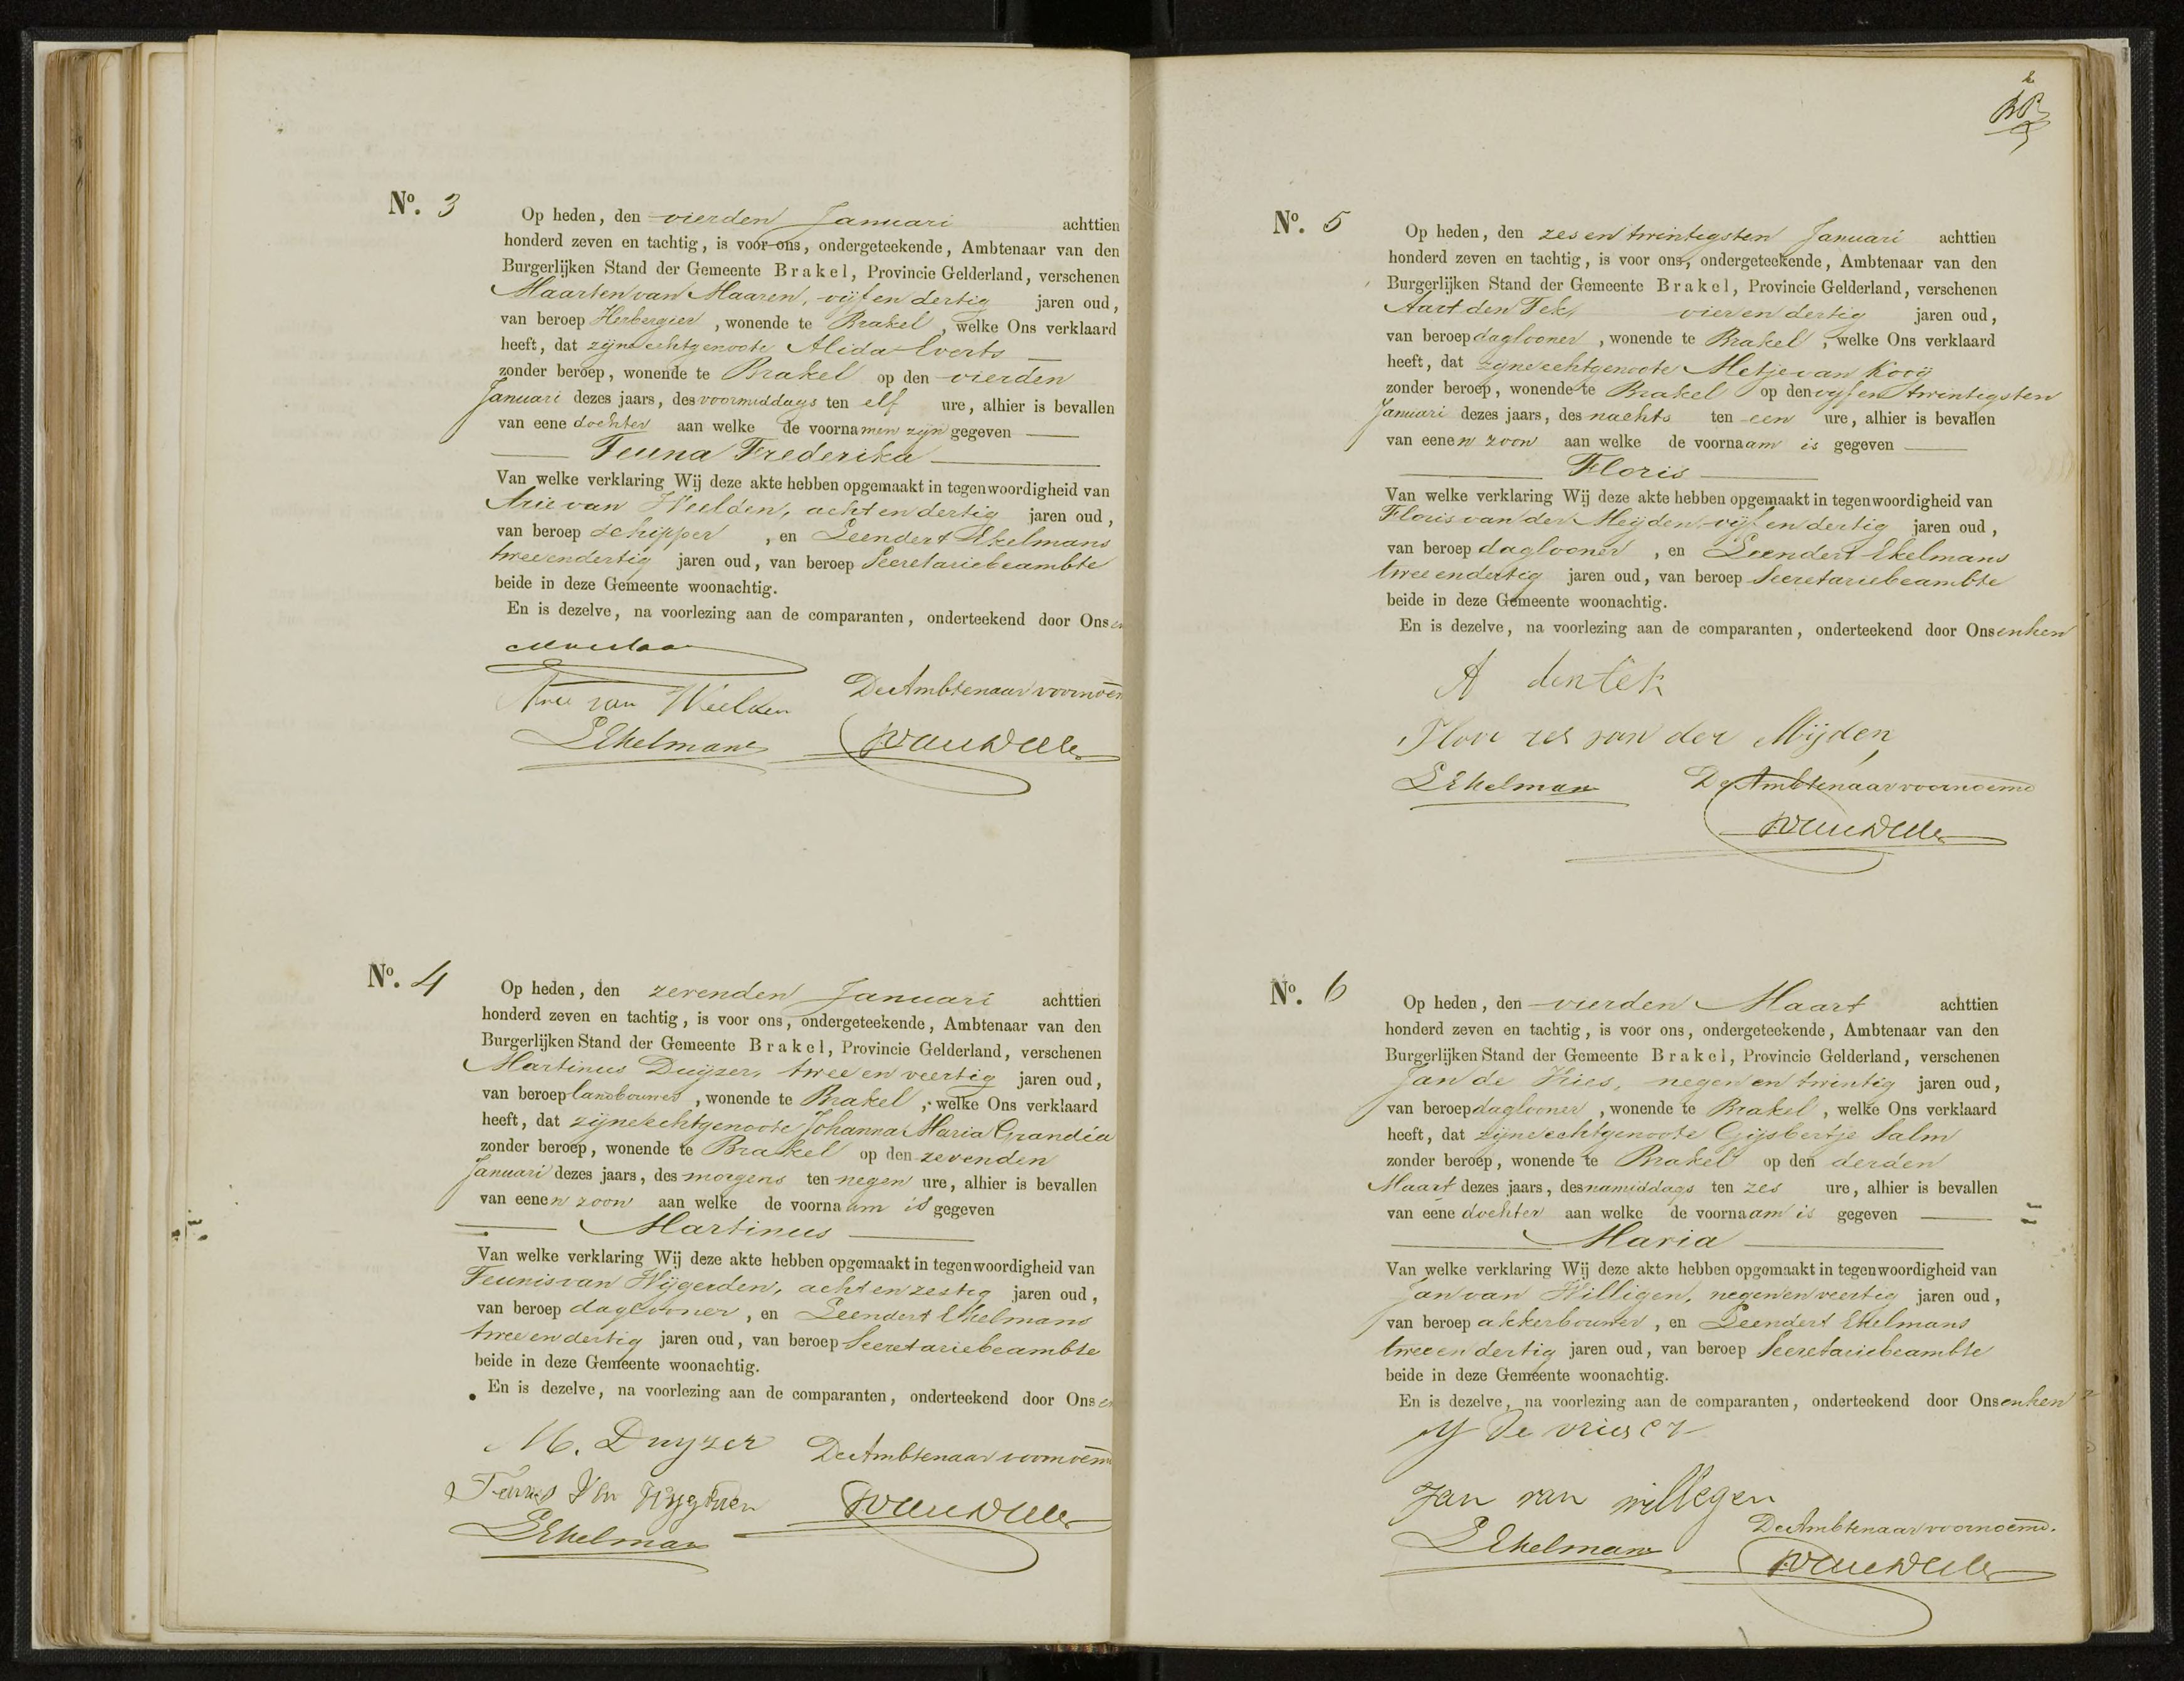 No. 3
Op heden, den vierden Januari achttien
honderd zeven en tachtig, is voor ons, ondergeteekende, Ambtenaar van den
Burgerlijken Stand der Gemeente Brakel, Provincie Gelderland, verschenen
Maarten van Maaren, vijf en dertig jaren oud,
van beroep Herbergier, wonende te Brakel, welke Ons verklaard
heeft, dat zijne echtgenoote Alida Everts
zonder beroep, wonende te Brakel op den vierden
Januari dezes jaars, des voormiddags ten elf ure, alhier is bevallen
van eene dochter aan welke de voornamen zijn gegeven
Teuna Frederika
Van welke verklaring Wij deze akte hebben opgemaakt in tegenwoordigheid van
Arie van Weelden, acht en dertig jaren oud,
van beroep schipper, en Leendert Ekelmans
twee en dertig jaren oud, van beroep Secretariebeambte
beide in deze Gemeente woonachtig.
En is dezelve, na voorlezing aan de comparanten, onderteekend door Ons en
Arie van Weelden
De Ambtenaar voornoem
LEkelmans
No. 4
Op heden, den zevenden Januari achttien
honderd zeven en tachtig, is voor ons, ondergeteekende, Ambtenaar van den
Burgerlijken Stand der Gemeente Brakel, Provincie Gelderland, verschenen
Martinus Duijzer, twee en veertig jaren oud,
van beroep landbouwer, wonende te Brakel, welke Ons verklaard
heeft, dat zijne echtgenoote Johanna Maria Grandia
zonder beroep, wonende te Brakel op den zevenden
Januari dezes jaars, des morgens ten negen ure, alhier is bevallen
van eenen zoon aan welke de voornaam is gegeven
Martinus
Van welke verklaring Wij deze akte hebben opgemaakt in tegenwoordigheid van
Teunis van Wijgerden, acht en zestig jaren oud,
van beroep daglooner, en Leendert Ekelmans
twee en dertig jaren oud, van beroep Secretariebeambte
beide in deze Gemeente woonachtig.
En is dezelve, na voorlezing aan de comparanten, onderteekend door Ons en
M. Duyzer
De Ambtenaar voornoemd
LEkelmans
No. 5
Op heden, den zes en twintigsten Januari achttien
honderd zeven en tachtig, is voor ons, ondergeteekende, Ambtenaar van den
Burgerlijken Stand der Gemeente Brakel, Provincie Gelderland, verschenen
Aart den Tek, vier en dertig jaren oud,
van beroep daglooner, wonende te Brakel, welke Ons verklaard
heeft, dat zijne echtgenoote Metje van Kooij
zonder beroep, wonende te Brakel op den vijf en twintigsten
Januari dezes jaars, des nachts ten een ure, alhier is bevallen
van eenen zoon aan welke de voornaam is gegeven
Floris
Van welke verklaring Wij deze akte hebben opgemaakt in tegenwoordigheid van
Floris van der Meijden, vijf en dertig jaren oud,
van beroep daglooner, en Leendert Ekelmans
twee en dertig jaren oud, van beroep Secretariebeambte
beide in deze Gemeente woonachtig.
En is dezelve, na voorlezing aan de comparanten, onderteekend door Ons en hen
A den tek
van der Mijden
LEkelmans
De Ambtenaar voornoemd
No. 6
Op heden, den vierden Maart achttien
honderd zeven en tachtig, is voor ons, ondergeteekende, Ambtenaar van den
Burgerlijken Stand der Gemeente Brakel, Provincie Gelderland, verschenen
Jan de Vries, negen en twintig jaren oud,
van beroep daglooner, wonende te Brakel, welke Ons verklaard
heeft, dat zijne echtgenoote Gijsbertje Salm
zonder beroep, wonende te Brakel op den derden
Maart dezes jaars, des namiddags ten zes ure, alhier is bevallen
van eene dochter aan welke de voornaam is gegeven
Maria
Van welke verklaring Wij deze akte hebben opgemaakt in tegenwoordigheid van
Jan van Willigen, negen en veertig jaren oud,
van beroep akkerbouwer, en Leendert Ekelmans
twee en dertig jaren oud, van beroep Secretariebeambte
beide in deze Gemeente woonachtig.
En is dezelve, na voorlezing aan de comparanten, onderteekend door Ons en hen
Jan van willegen
De Ambtenaar voornoemd.
LEkelmans